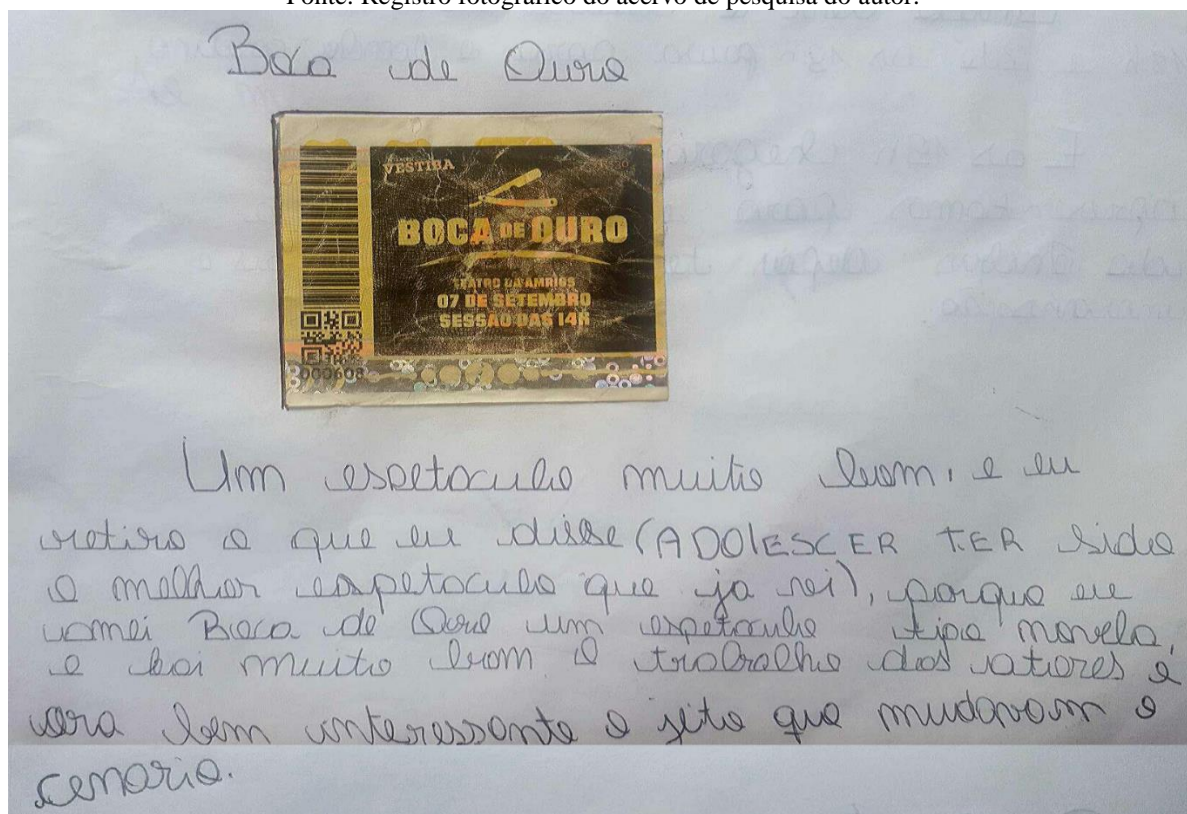 Fonte: Registro fotográfico do acervo de pesquisa do autor.
Boca de Ouro
VESTIBA
BOCA DE OURO
TEATRO DA AMRIGS
07 DE SETEMBRO
SESSÃO DAS 14H
000608
Um espetaculo muito bom, e eu
retiro o que eu disse (ADOlESCER TER sido
o melhor espetaculo que ja vi), porque eu
amei Boca de Ouro um espetaculo tipo novela,
e foi muito bom o trabalho dos atores e
era bem interessante o jeito que mudavam o
cenario.